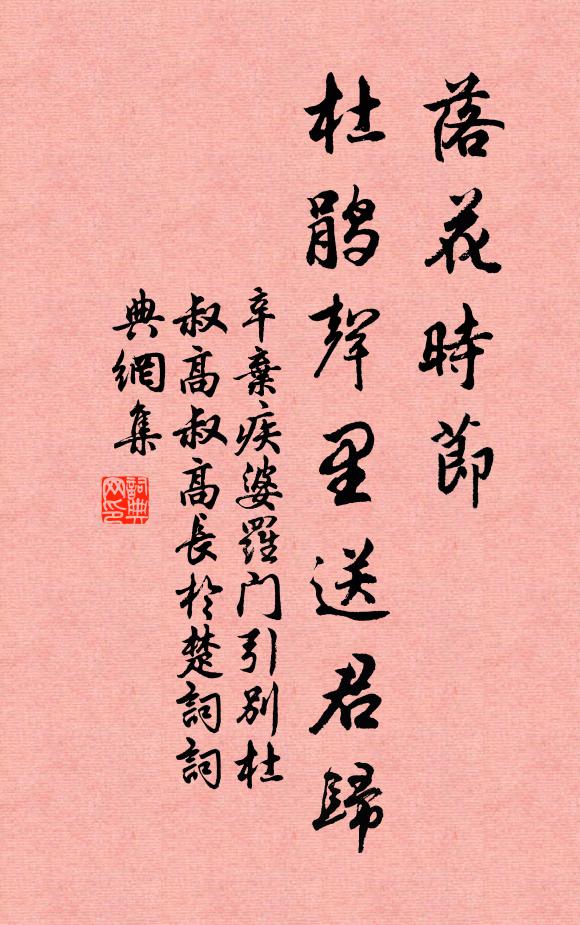 落花時節
杜鵑聲里送君歸
辛棄疾婆羅门引別杜
叔高叔高長於楚詞詞
典網集
詞典
网印